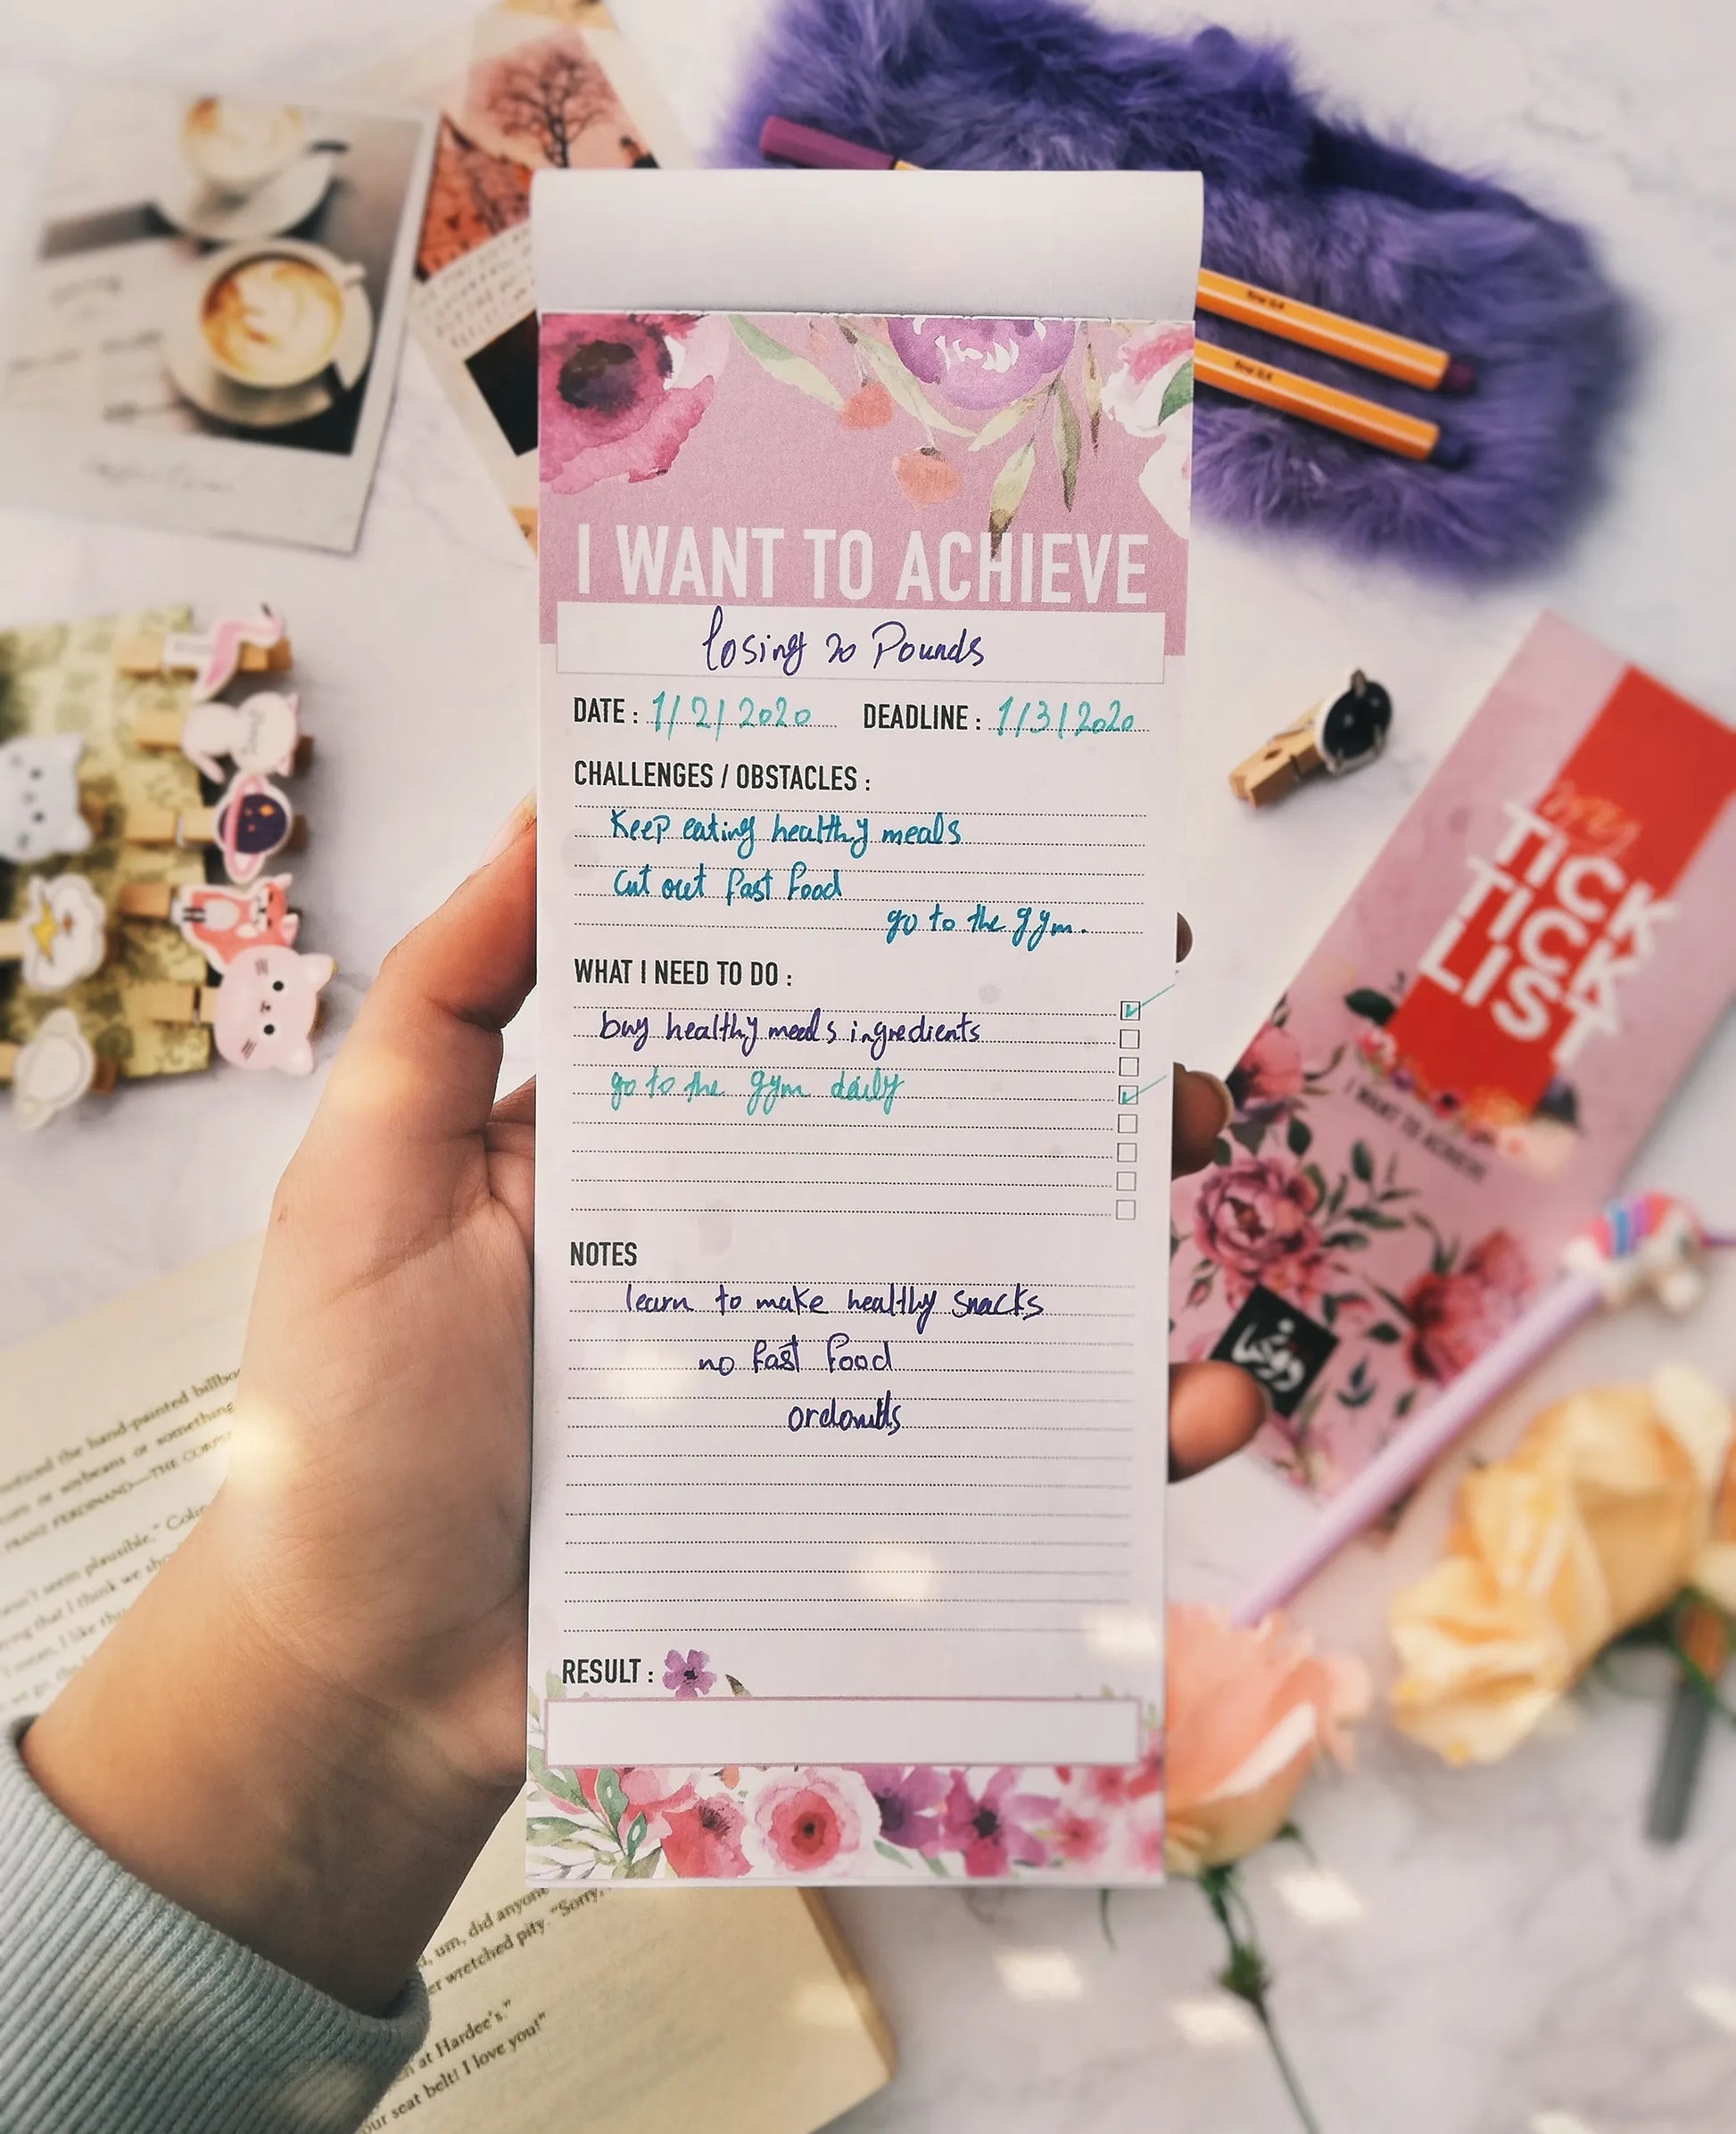 fine 0.4
fine 0.4
I WANT TO ACHIEVE
losing 20 Pounds
DATE : 1/2/2020 DEADLINE : 1/3/2020
CHALLENGES / OBSTACLES :
Keep eating healthy meals
Cut out fast food
go to the gym.
WHAT I NEED TO DO :
buy healthy meals ingredients
go to the gym daily
NOTES
learn to make healthy snacks
no fast food
RESULT :
TICK
TICK
LIST
I WANT TO ACHIEVE
noticed the hand-painted
or soybeans or something
FRANZ FERDINAND—THE
seem plausible." Colin
that I think we
I like
um, did anyone
wretched pity. "Sorry,
at Hardee's."
seat belt! I love you!"